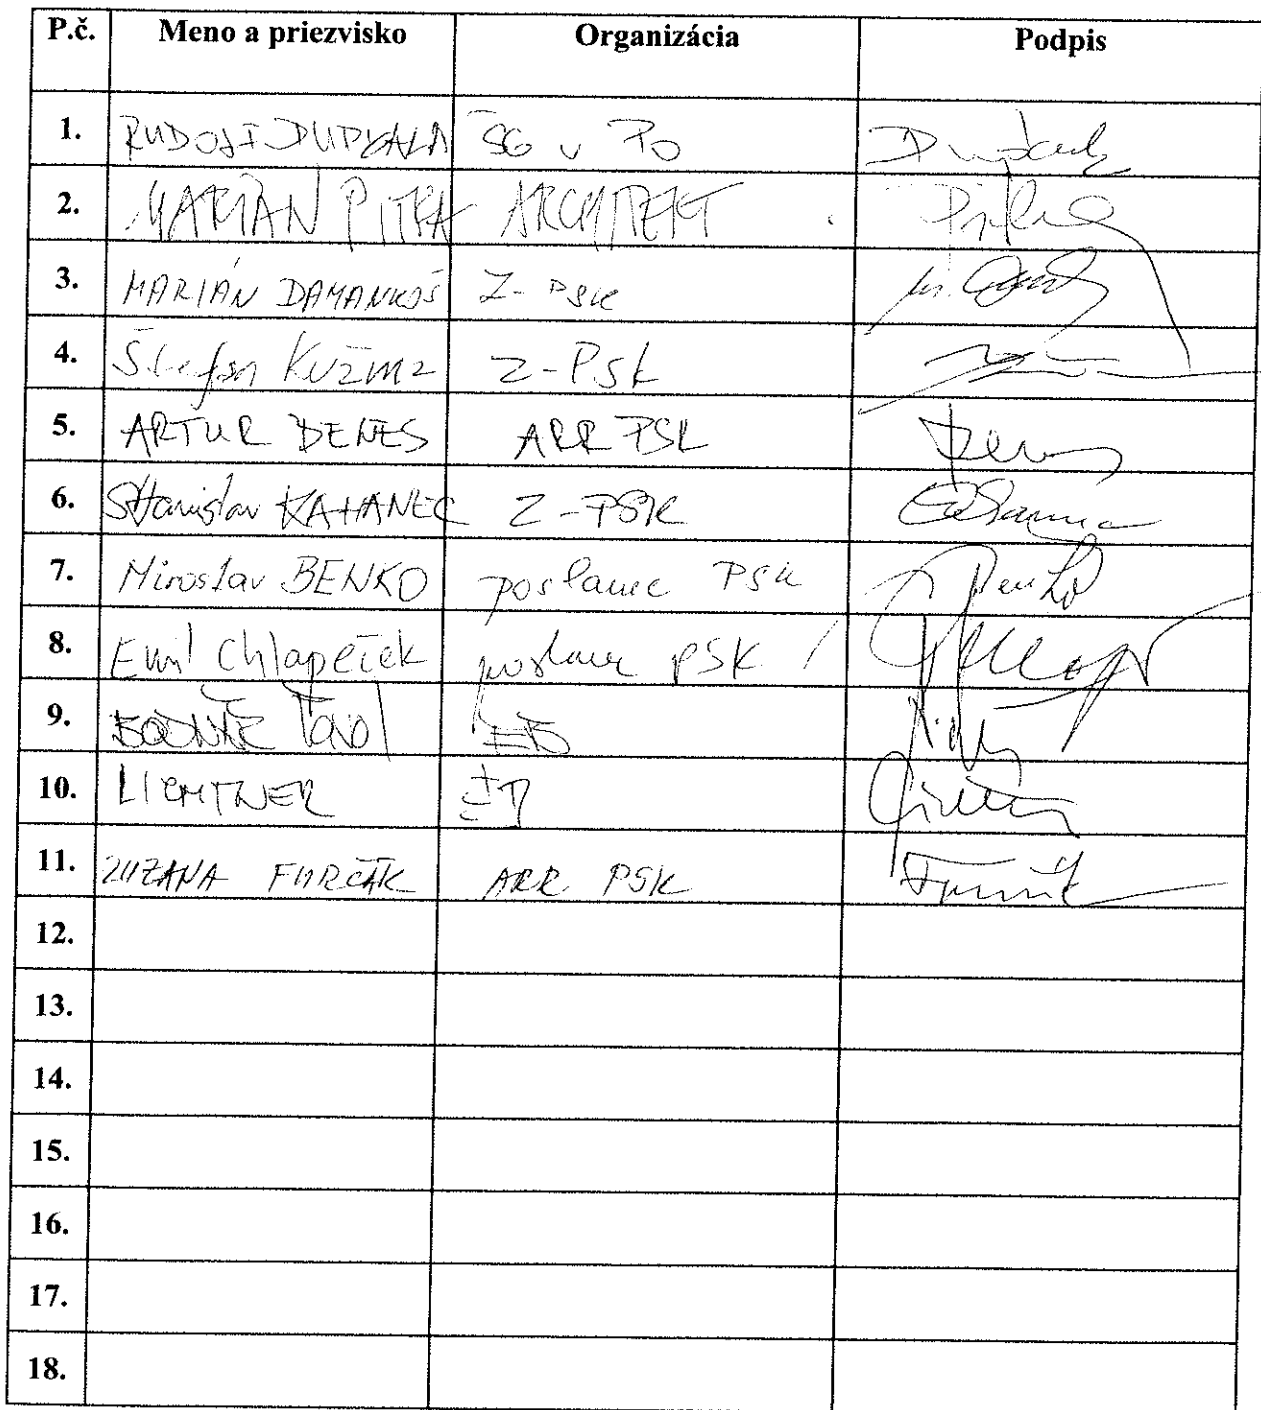 P.č. Meno a priezvisko Organizácia Podpis
1. RUDOLF DUPKALA ŠG v PO
2. MARIÁN PITKA ARCHITEKT
3. MARIÁN DAMANKOŠ Z-PSK
4. Štefan Kužma Z-PSK
5. ARTUR BENEŠ ARR PSK
6. Stanislav KAHANEC Z-PSK
7. Miroslav BENKO poslanec PSK Benko
8. Emil Chlapeček poslanec PSK
9. BODNÁR
10. LICHTNER
11. ZUZANA FURČÁK ARR PSK
12.
13.
14.
15.
16.
17.
18.